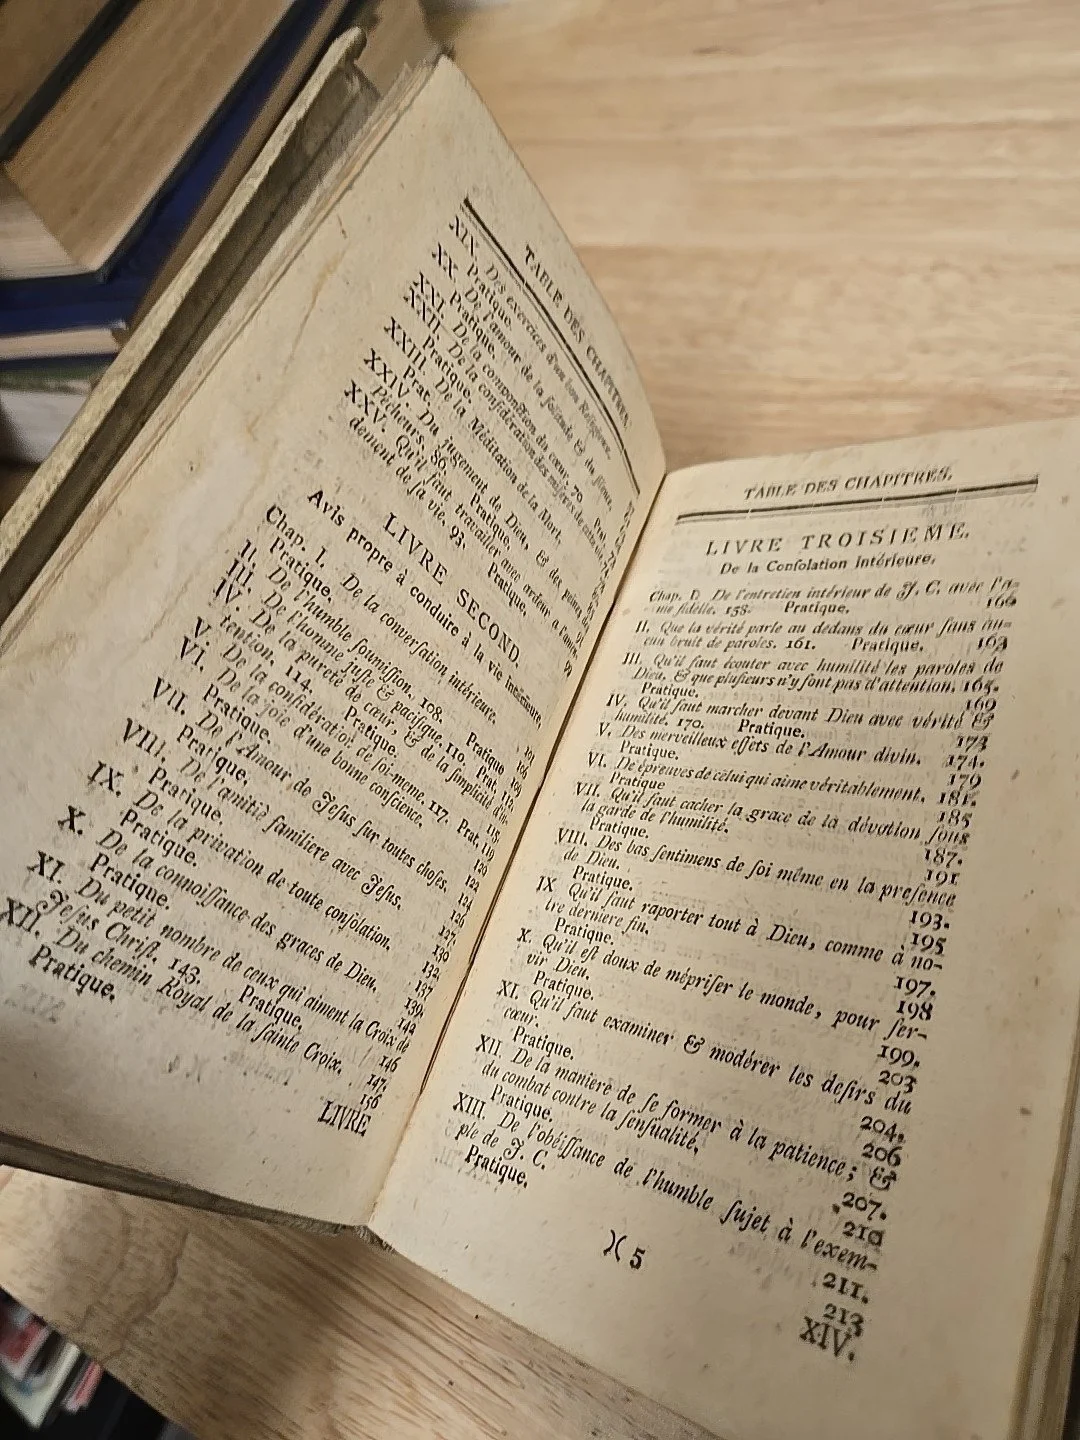 TABLE DES CHAPITRES.
XIX. Des exercices d'un bon Religieux.
Pratique.
XX. De l'amour de la solitude & du silence.
Pratique.
XXI. De la componction du cœur. 70 Prat.
XXII. De la considération des misères de cette vie.
Pratique.
XXIII. De la Méditation de la Mort.
Prat.
XXIV. Du jugement de Dieu, & des peines des
Pécheurs. 86. Pratique.
XXV. Qu'il faut travailler avec ardeur à l'amen-
dement de sa vie. 93. Pratique. 99
LIVRE SECOND.
Avis propre à conduire à la vie intérieure,
Chap. I. De la conversation intérieure.
Pratique.
II. De l'humble soumission. 108. Pratique 109
III. De l'homme juste & pacifique. 110. Prat. 112
IV. De la pureté de cœur, & de la simplicité d'in-
tention. 114. Pratique. 115
V. De la considération de soi-meme. 117. Prat. 119
VI. De la joie d'une bonne conscience. 120
Pratique. 122
VII. De l'Amour de Jesus sur toutes choses. 124
Pratique. 126
VIII. De l'amitiè familiere avec Jesus. 127.
Pratique. 130
IX. De la privation de toute consolation. 132.
Pratique. 137
X. De la connoissance des graces de Dieu. 139.
Pratique. 142
XI. Du petit nombre de ceux qui aiment la Croix de
Jesus Christ. 143. Pratique. 146
XII. Du chemin Royal de la sainte Croix. 147.
Pratique. 156
LIVRE
TABLE DES CHAPITRES.
LIVRE TROISIEME.
De la Consolation intérieure.
Chap. I. De l'entretien intérieur de J. C. avec l'a-
me fidelle. 158. Pratique. 160
II. Que la vérité parle au dedans du cœur sans au-
cun bruit de paroles. 161. Pratique. 163
III. Qu'il faut écouter avec humilité les paroles de
Dieu, & que plusieurs n'y font pas d'attention. 165.
Pratique. 169
IV. Qu'il faut marcher devant Dieu avec vérité &
humilité. 170. Pratique. 173
V. Des merveilleux effets de l'Amour divin. 174.
Pratique. 179
VI. De épreuves de celui qui aime véritablement. 181.
Pratique 185
VII. Qu'il faut cacher la grace de la dévotion sous
la garde de l'humilité. 187.
Pratique. 191
VIII. Des bas sentimens de soi même en la presence
de Dieu. 193.
Pratique. 195
IX Qu'il faut raporter tout à Dieu, comme à no-
tre derniere fin. 197.
Pratique. 198
X. Qu'il est doux de mépriser le monde, pour ser-
vir Dieu. 199.
Pratique. 203
XI. Qu'il faut examiner & modérer les desirs du
cœur. 204.
Pratique. 206
XII. De la maniere de se former à la patience; &
du combat contre la sensualité. 207.
Pratique. 210
XIII. De l'obéissance de l'humble sujet à l'exem-
ple de J. C. 211.
Pratique. 213
)( 5 XIV.